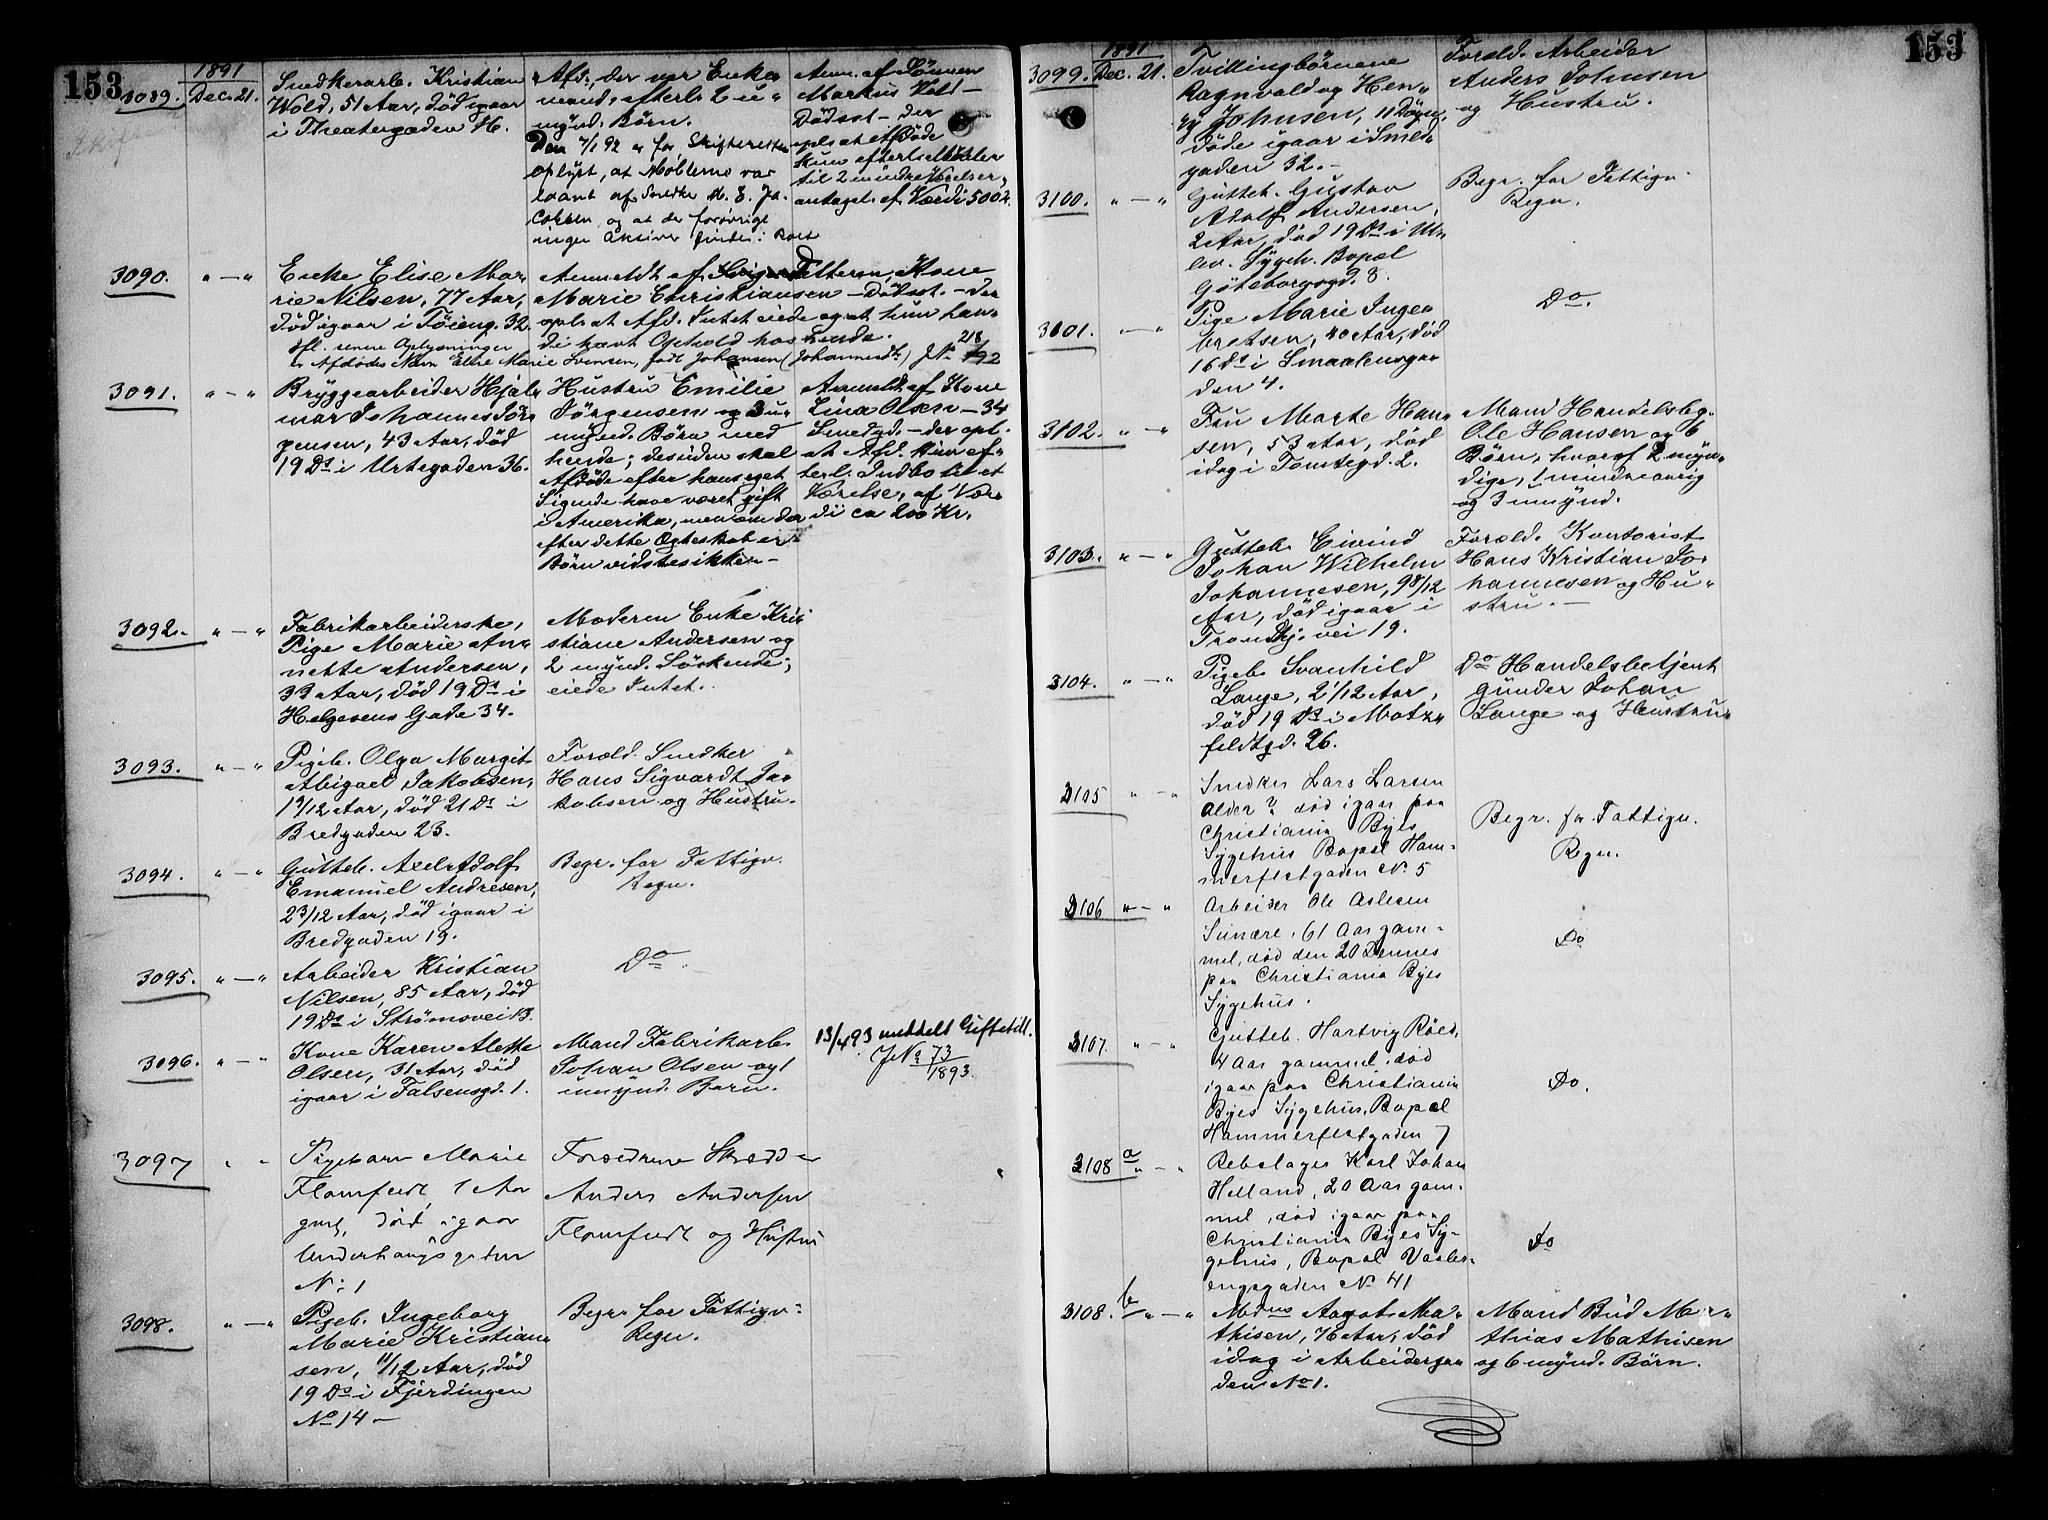 153
1891
3089.
Dec. 21.
Snedkerarb. Kristian
Wold, 51 Aar, død igaar
i Theatergaden 16.
Afd., der var Enke-
mand, efterl. 2 u-
mynd. Børn.
Den 7/1 92 er for Skifteretten
oplyst, at Møblerne var
laant af Snedker M. E. Ja-
cobsen, og at der forøvrigt
ingen Aktiver findes i Boet
Anm. af Sønnen
Markus Wold –
Dødsst. – der
opl. at Afdøde
kun efterl. Møbler
til 2 mindre Værelser,
antagel. af Værdi 500 K.
3090.
" — "
Enke Elise Ma-
rie Nilsen, 77 Aar,
død igaar i Tøieng. 32.
Anmeldt af Kone
Marie Christiansen – Dødsst. – der
opl. at Afd. Intet eiede og at hun hav-
de havt Ophold hos hende.
ifl. senere Oplysninger
er Afdødes Navn Elise Marie Svensen, født Johansen (Johannesd.) J.No. 218/92
3091.
" — "
Bryggearbeider Hjal-
mar Johannes Jør-
gensen, 43 Aar, død
19 Ds i Urtegaden 36.
Hustru Emilie
Jørgensen og 3 u-
mynd. Børn med
hende; desuden skal
Afdøde efter hans eget
Sigende have været gift
i Amerika, men om der
efter dette Ægteskab er
Børn vides ikke. –
Anmeldt af Kone
Lina Olsen – 34
Smedgd. – der opl.
at Afd. kun ef-
terl. Indbo til et
Værelse, af Vær-
di ca 200 Kr.
3092.
" — "
Fabrikarbeiderske,
Pige Marie An-
nette Andersen,
33 Aar, død 19 Ds i
Helgesens Gade 34.
Moderen Enke Kri-
stiane Andersen og
2 mynd. Søskende;
eiede Intet.
3093.
" — "
Pigeb. Olga Margit
Abigael Jakobsen,
1 9/12 Aar, død 21 Ds i
Bredgaden 23.
Foræld. Snedker
Hans Sigvardt Ja-
kobsen og Hustru.
3094.
" — "
Gutteb. Axel Adolf
Emanuel Andresen,
2 3/12 Aar, død igaar i
Bredgaden 19.
Begr. for Fattigv.
Regn.
3095.
" — "
Arbeider Kristian
Nilsen, 85 Aar, død
19 Ds i Strømsvei 13.
Do.
3096.
" — "
Kone Karen Alette
Olsen, 31 Aar, død
igaar i Falsensgd. 1.
Mand Fabrikarb.
Johan Olsen og 1
umynd. Barn.
13/4 93 meddelt Giftetill.
JNo 73/1893.
3097
" "
Pigebarn Marie
1 Aar
gml, død igaar
Underhaugsgaden
No 1
Forældrene
Anders Andersen
og Hustru
3098.
" — "
Pigeb. Ingeborg
Marie Kristian-
sen, 11/12 Aar, død
19 Ds i Fjerdingen
No 14 –
Begr. for Fattigv.
Regn.
153
1891
3099.
Dec. 21.
Tvillingbørnene
Ragnvald og Hen-
ry Johnsen, 11 Døgn,
døde igaar i Smed-
gaden 32. –
Foræld. Arbeider
Anders Johnsen
og Hustru.
3100.
" — "
Gutteb. Gustav
Adolf Andersen,
2 Aar, død 19 Ds i Ul-
lev. Sygeh. Bopæl
Göteborggd. 8.
Begr. for Fattigv.
Regn.
3101.
" — "
Pige Marie Inge-
bretsen, 40 Aar, død
16 Ds i Smaalensga-
den 4.
Do.
3102.
" — "
Fru Marte Han-
sen, 53 Aar, død
idag i Tomtegd. 2.
Mand Handelsbg.
Ole Hansen og 6
Børn, hvoraf 2 myn-
dige, 1 mindreaarig
og 3 umynd.
3103.
" — "
Gutteb. Eivind
Johan Wilhelm
Johannesen, 9 8/12
Aar, død igaar i
Trondhj. vei 19.
Foræld. Kontorist
Hans Kristian Jo-
hannesen og Hu-
stru. –
3104.
" — "
Pigeb. Svanhild
Lange, 2 1/12 Aar,
død 19 Ds i Motz-
feldtgd. 26.
Do Handelsbetjent
Günder Johan
Lange og Hustru
3105
" — "
Snedker Lars Larsen
Alder? død igaar paa
Christiania Byes
Sygehus Bopæl Ham-
merfestgaden No 5
Begr. for Fattigv.
Regn.
3106
" — "
Arbeider Ole Aslesen
Sunære, 61 Aar gam-
mel, død den 20 Dennes
paa Christiania Byes
Sygehus.
Do
3107
" — "
Gutteb. Hartvig Röed,
4 Aar gammel, død
igaar paa Christiania
Byes Sygehus, Bopæl
Hammerfestgaden 7
Do.
3108 a
" — "
Rebslager Karl Johan
Helland, 20 Aar gam-
mel, død igaar paa
Christiania Byes Sy-
gehus, Bopæl Vaaler-
engagaden No 41
Do
3108. b
" — "
Mdme Aagot Ma-
thisen, 76 Aar, død
idag i Arbeiderga-
den No 1.
Mand Bud Ma-
thias Mathisen
og 6 mynd. Børn.